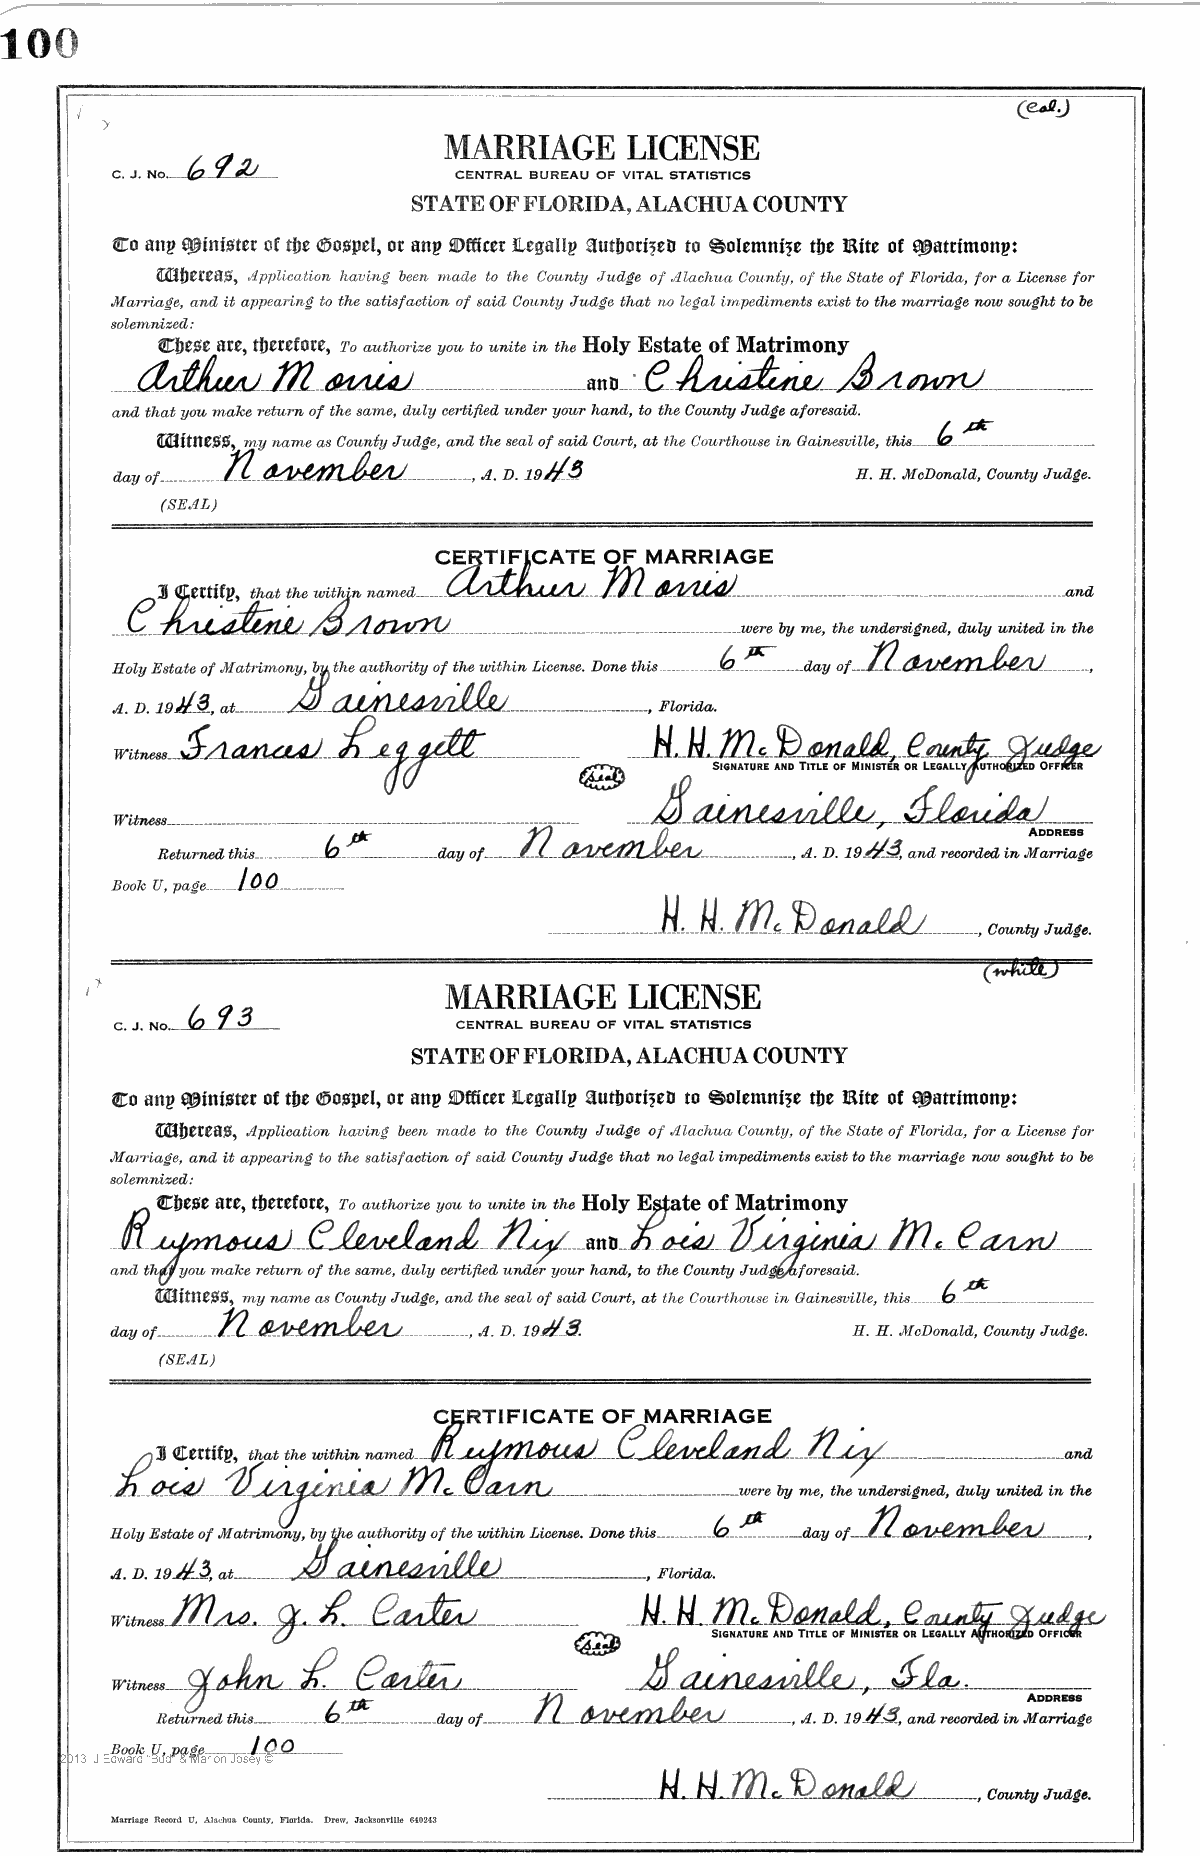 100
(Col.)
MARRIAGE LICENSE
C. J. No. 692
CENTRAL BUREAU OF VITAL STATISTICS
STATE OF FLORIDA, ALACHUA COUNTY
To any Minister of the Gospel, or any Officer Legally Authorized to Solemnize the Rite of Matrimony:
Whereas, Application having been made to the County Judge of Alachua County, of the State of Florida, for a License for
Marriage, and it appearing to the satisfaction of said County Judge that no legal impediments exist to the marriage now sought to be
solemnized:
These are, therefore, To authorize you to unite in the Holy Estate of Matrimony
Arthur Morris and Christine Brown
and that you make return of the same, duly certified under your hand, to the County Judge aforesaid.
Witness, my name as County Judge, and the seal of said Court, at the Courthouse in Gainesville, this 6th
day of November, A. D. 1943 H. H. McDonald, County Judge.
(SEAL)
CERTIFICATE OF MARRIAGE
I Certify, that the within named Arthur Morris and
Christine Brown were by me, the undersigned, duly united in the
Holy Estate of Matrimony, by the authority of the within License. Done this 6th day of November,
A. D. 1943, at Gainesville, Florida.
Witness Frances Leggett H. H. McDonald, County Judge
Seal SIGNATURE AND TITLE OF MINISTER OR LEGALLY AUTHORIZED OFFICER
Witness Gainesville, Florida
ADDRESS
Returned this 6th day of November, A. D. 1943, and recorded in Marriage
Book U, page 100
H. H. McDonald, County Judge.
(white)
MARRIAGE LICENSE
C. J. No. 693
CENTRAL BUREAU OF VITAL STATISTICS
STATE OF FLORIDA, ALACHUA COUNTY
To any Minister of the Gospel, or any Officer Legally Authorized to Solemnize the Rite of Matrimony:
Whereas, Application having been made to the County Judge of Alachua County, of the State of Florida, for a License for
Marriage, and it appearing to the satisfaction of said County Judge that no legal impediments exist to the marriage now sought to be
solemnized:
These are, therefore, To authorize you to unite in the Holy Estate of Matrimony
Rymous Cleveland Nix and Lois Virginia McCarn
and that you make return of the same, duly certified under your hand, to the County Judge aforesaid.
Witness, my name as County Judge, and the seal of said Court, at the Courthouse in Gainesville, this 6th
day of November, A. D. 1943. H. H. McDonald, County Judge.
(SEAL)
CERTIFICATE OF MARRIAGE
I Certify, that the within named Rymous Cleveland Nix and
Lois Virginia McCarn were by me, the undersigned, duly united in the
Holy Estate of Matrimony, by the authority of the within License. Done this 6th day of November,
A. D. 1943, at Gainesville, Florida.
Witness Mrs. J. L. Carter H. H. McDonald, County Judge
Seal SIGNATURE AND TITLE OF MINISTER OR LEGALLY AUTHORIZED OFFICER
Witness John L. Carter Gainesville, Fla.
ADDRESS
Returned this 6th day of November, A. D. 1943, and recorded in Marriage
Book U, page 100
2013 J Edward "Bud" & Marion Josey ©
H. H. McDonald, County Judge.
Marriage Record U, Alachua County, Florida. Drew, Jacksonville 640243